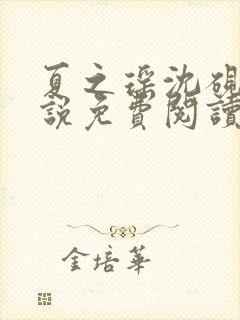 夏之瑤沈硯
說免費閱讀
金培華